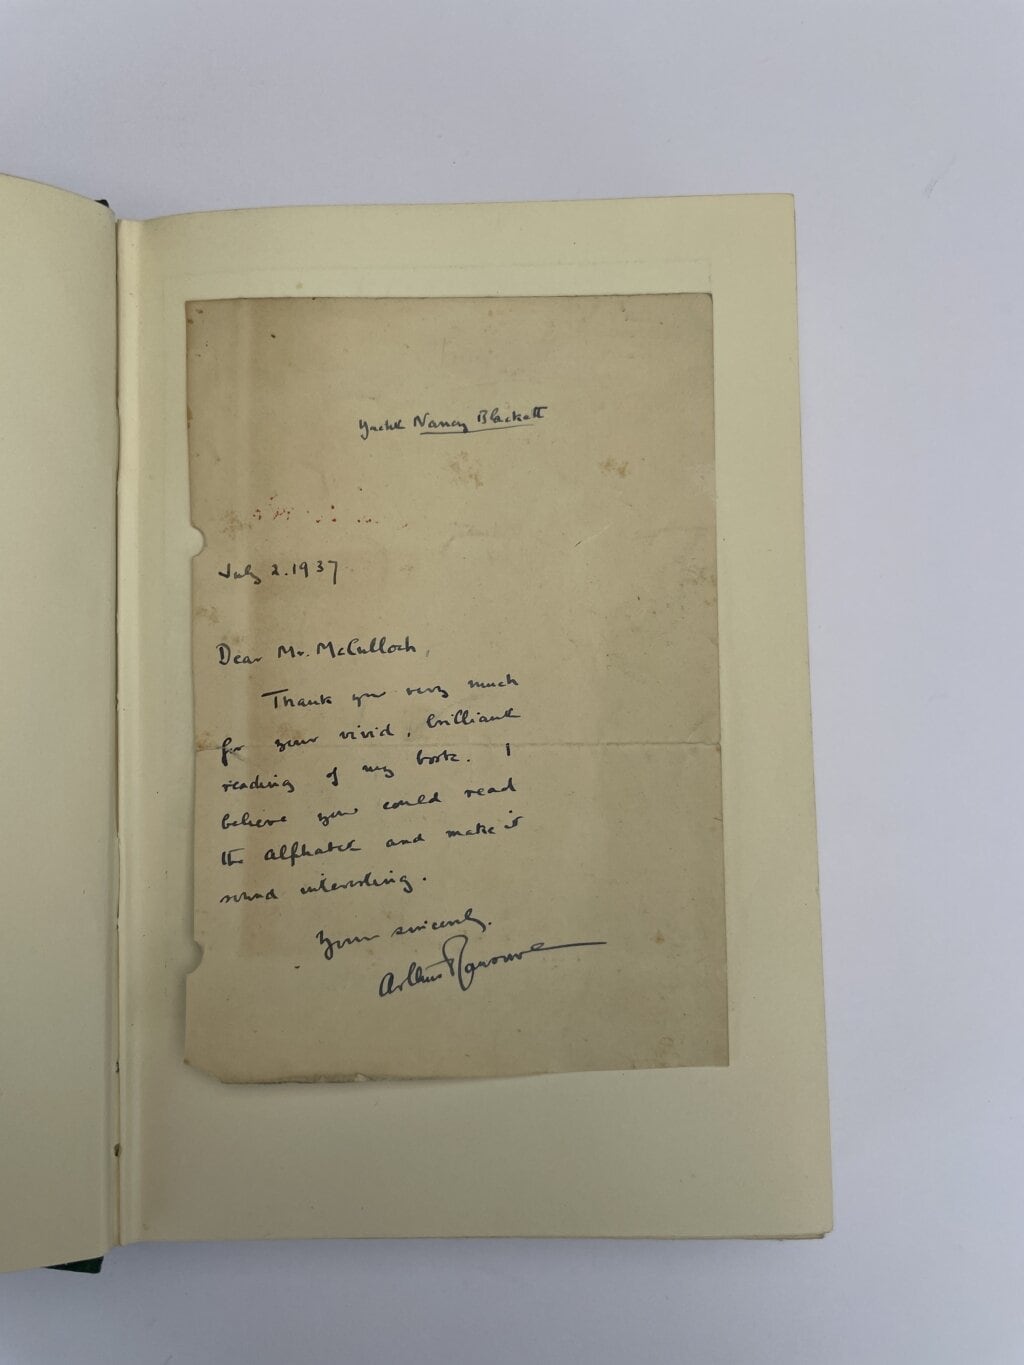 Yacht Nancy Blackett
July 2. 1937
Dear Mr. McCulloch,
Thank you very much
for your vivid, brilliant
reading of my book. I
believe you could read
the alphabet and make it
sound interesting.
Yours sincerely.
Arthur Ransome